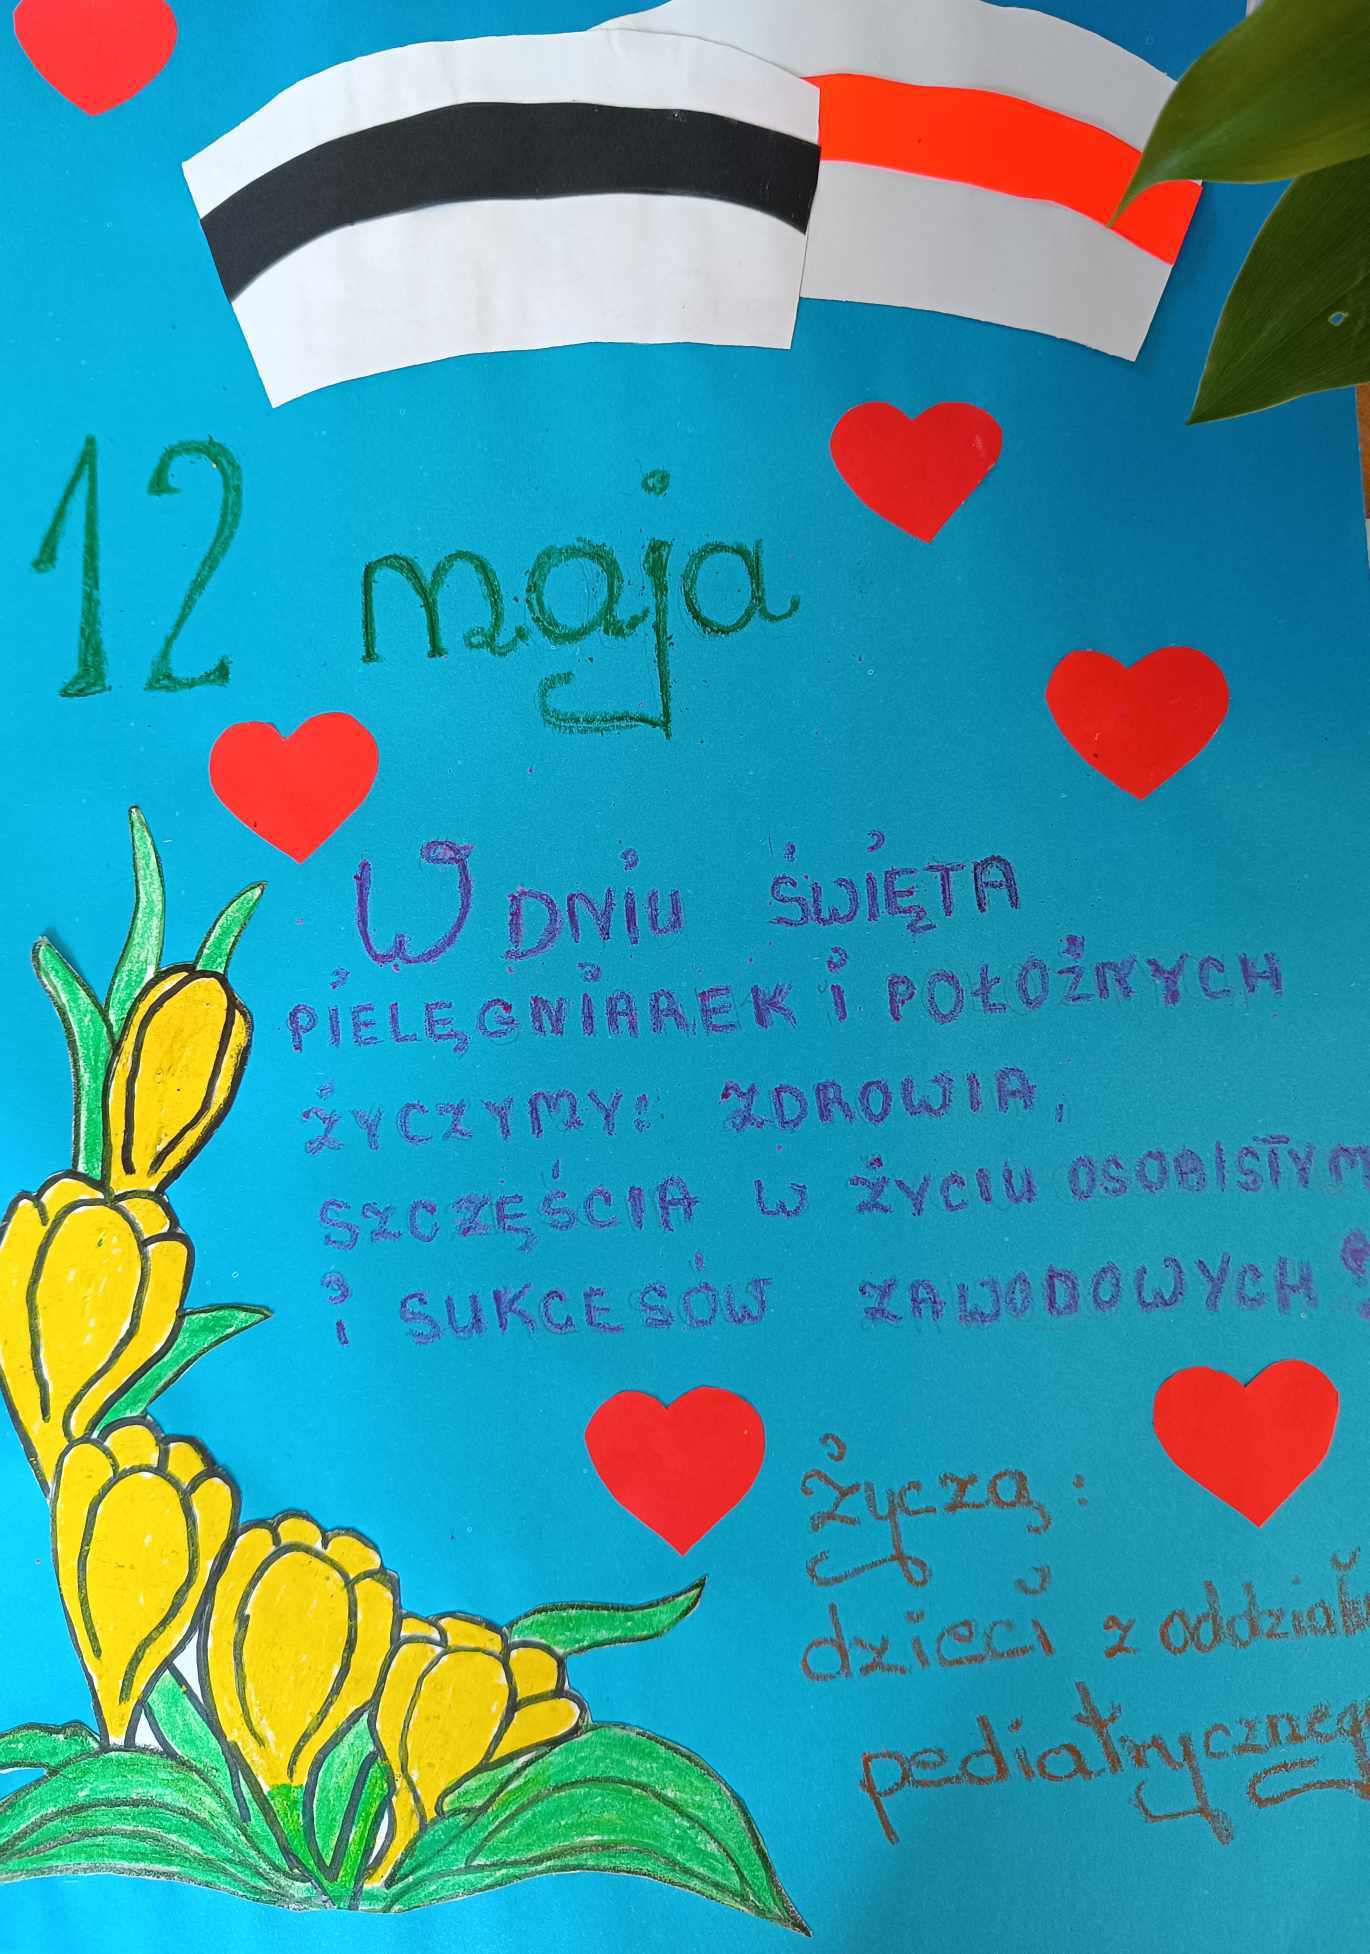 12 maja
W DNiU ŚWiĘTA
PiELĘGNiAREK i POŁOŻNYCH
ŻYCZYMY: ZDROWIA,
SZCZĘŚCIA W ŻYCIU OSOBISTYM
i SUKCESÓW ZAWODOWYCH!
Życzą:
dzieci z oddziału
pediatryczneg